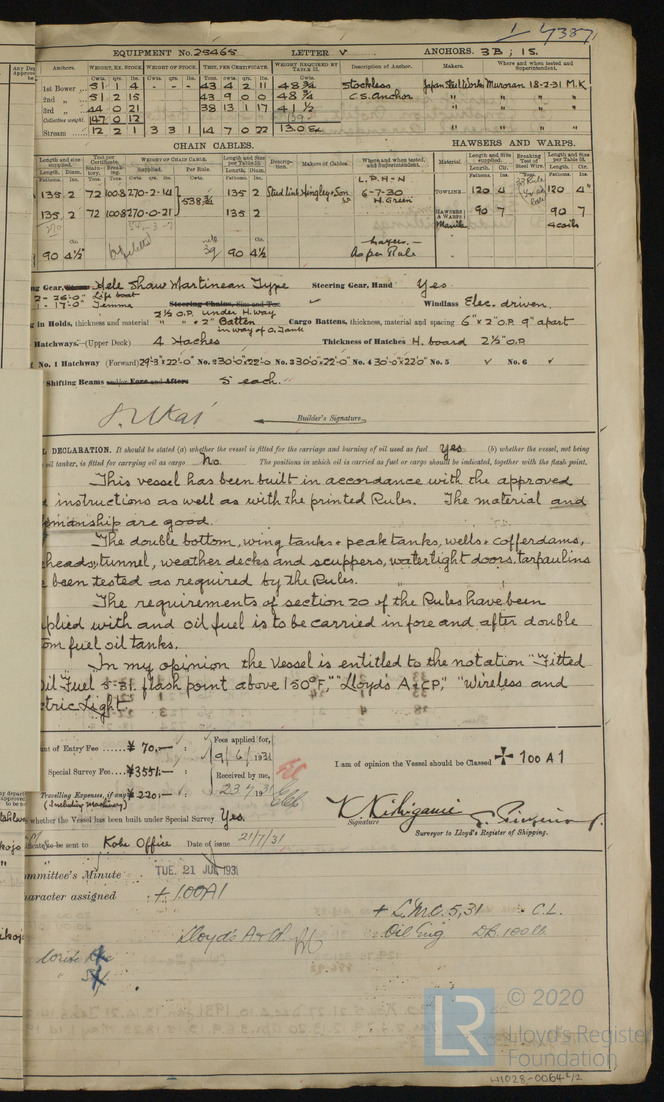 1 4387
EQUIPMENT No. 25465 LETTER V ANCHORS. 3B; 1S.
Anchors. WEIGHT, EX. STOCK. WEIGHT OF STOCK. TEST, PER CERTIFICATE. WEIGHT REQUIRED BY TABLE 11. Description of Anchor. Makers. Where and when tested and Superintendent.
Cwts. qrs. lbs. Cwts. qrs. lbs. Tons. cwts. qrs. lbs. Cwts.
1st Bower 51 1 4 - - - 43 4 2 11 48 3/4 Stockless Japan Steel Works Muroran 18-2-31 M.K
2nd „ 51 2 15 43 9 0 0 48 3/4 C.S. Anchor " " "
3rd „ 44 0 21 38 13 1 17 41 1/2 " " "
Collective weight. 147 0 12 139 -
Stream 12 2 1 3 3 1 14 7 0 22 13.0 " " "
CHAIN CABLES. HAWSERS AND WARPS.
Length and size supplied. Test per Certificate. WEIGHT OF CHAIN CABLE. Length and size per Table 22. Description. Makers of Cables. Where and when tested, and Superintendent. Material Length and size supplied. Breaking Test of Steel Wire. Length and size per Table 22.
Fathoms. Diam. Supplied. Per Rule Fathoms. Ins. Fathoms. Ins. Tons. Fathoms. Ins.
L.P.H-N
135 2 72 100.8 270-2-14 538 3/4 135 2 Stud link Hingley & Son 6-7-30 TOWLINE 120 4 120 4"
H. Green
135 2 72 100.8 270-0-21 135 2 HAWSERS & WARPS 90 7 90 7
Manila 4 coils
90 4 1/2 90 4 1/2 As per Rule
ng Gear, Hele Shaw Martineau Type Steering Gear, Hand Yes
2 - 26'-0" Life boat
1 - 17'-0" Steering Chains, Size and Test Windlass Elec. driven
2 1/2 O.P. under H.way
g in Holds, thickness and material " " 2" Batten Cargo Battens, thickness, material and spacing 6" x 2" O.P. 9" apart
in way of O. Tank
Hatchways.—(Upper Deck) 4 Haches Thickness of Hatches H. board 2 1/2" O.P
No. 1 Hatchway (Forward) 29'-3" x 22'-0" No. 2 30'-0" x 22'-0" No. 3 30'-0" x 22'-0" No. 4 30'-0" x 22'-0" No. 5 No. 6
Shifting Beams and/or Fore and Afters 5 each.
Builder's Signature
L DECLARATION. It should be stated (a) whether the vessel is fitted for the carriage and burning of oil used as fuel Yes (b) whether the vessel, not being
oil tanker, is fitted for carrying oil as cargo No. The positions in which oil is carried as fuel or cargo should be indicated, together with the flash point.
This vessel has been built in accordance with the approved
instructions as well as with the printed Rules. The material and
manship are good.
The double bottom, wing tanks & peak tanks, wells & cofferdams,
heads, tunnel, weather decks and scuppers, watertight doors, tarpaulins
been tested as required by the Rules.
The requirements of section 20 of the Rules have been
plied with and oil fuel is to be carried in fore and after double
om fuel oil tanks.
In my opinion the Vessel is entitled to the notation "Fitted
Oil Fuel 5-31. flash point above 150°F," "Lloyd's A & CP," "Wireless and
ctric Light.
unt of Entry Fee ¥ 70.— : Fees applied for,
9/6/1931
I am of opinion the Vessel should be Classed + 100 A1
Special Survey Fee ¥ 3551.— : Received by me,
Travelling Expenses, if any ¥ 220.— : 23 7 1931
(Including machinery)
Signature K. Nishigami
Surveyor to Lloyd's Register of Shipping.
whether the Vessel has been built under Special Survey Yes.
ficate to be sent to Kobe Office Date of issue 21/7/31
ommittee's Minute TUE. 21 JUL 1931
haracter assigned + 100A1
+ L.M.C. 5,31 C.L.
Lloyd's A & CP Oil Eng DB. 100 lb
LR © 2020
Lloyd's Register
Foundation
W1028-0064 2/2